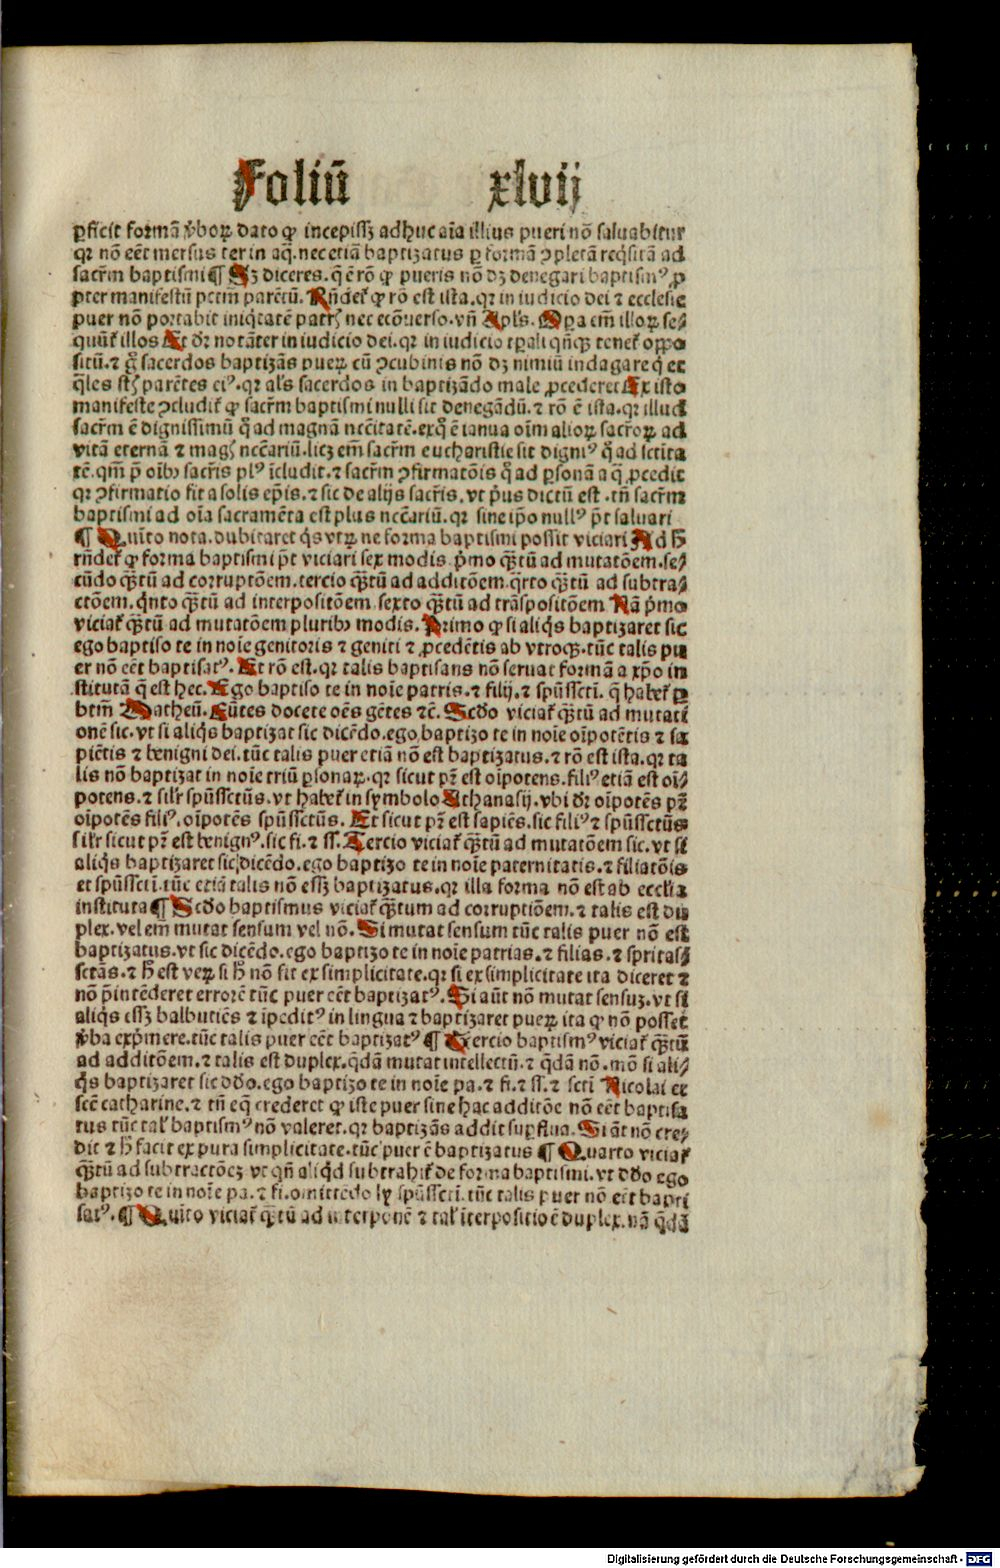 Foliū xlvij
ꝑficit formā v̓boꝝ dato ꝙ incepissꝫ adhuc aīa illius pueri nō saluabitur
qꝛ nō eēt mersus ter in aq̄. nec etiā baptizatus ꝑ formā ꝯpletā req̇sitā ad
sacr̄m baptismi ¶ Sꝫ diceres. q̄ ē rō ꝙ pueris nō dꝫ denegari baptismꝰ ꝓ
pter manifestū pctm̄ parētū. Rn̄det̄ ꝙ rō est ista. qꝛ in iudicio dei ⁊ ecclesie
puer nō portabit iniq̇tatē patrꝭ nec ecōuerso. vn̄ Apl's. Opa em̄ illoꝝ se⸗
quūt̄ illos Et dr̄ notāter in iudicio dei. qꝛ in iudicio tꝑali qn̄qꝫ tenet̄ oppo
sitū. ⁊ g̊ sacerdos baptizās pueꝝ cū ꝯcubinis nō dꝫ nimiū indagare q̇ et
q̄les st̄ꝭ parētes eiꝰ. qꝛ al's sacerdos in baptizādo male ꝓcederet Ex isto
manifeste ꝯcludit̄ ꝙ sacr̄m baptismi nulli sit denegādū. ⁊ rō ē ista. qꝛ illud
sacr̄m ē dignissimū q̊ ad magnā nccītatē. exq̊ ē ianua oīm alioꝝ sacroꝝ ad
vitā eternā ⁊ magꝭ nccāriū. licꝫ em̄ sacr̄m eucharistie sit digniꝰ q̊ ad sctita
tē. qm̄ p̄ oībꝫ sacrīs plꝰ īcludit. ⁊ sacr̄m ꝯfirmatōis q̊ ad ꝑsonā a q̊ ꝓcedit
qꝛ ꝯfirmatio fit a solis ep̄is. ⁊ sic de alijs sacrīs. vt p̓us dictū est. tn̄ sacr̄m
baptismi ad oīa sacramēta est plus nccāriū. qꝛ sine ip̄o nullꝰ p̄t saluari
¶ Quīto nota. dubitaret q̇s vtꝝ ne forma baptismi possit viciari Ad hͦ
rn̄det̄ ꝙ forma baptismi p̄t viciari sex modis. p̓mo qꝫtū ad mutatōem. se⸗
cūdo qꝫtū ad corruptōem. tercio qꝫtū ad additōem. q̄rto qꝫtū ad subtra⸗
ctōem. q̇nto qꝫtū ad interpositōem sexto qꝫtū ad trāspositōem Nā p̓mo
viciat̄ qꝫtū ad mutatōem pluribꝫ modis. Primo ꝙ si aliq̇s baptizaret sic
ego baptiso te in noīe genitoris ⁊ geniti ⁊ ꝓcedētis ab vtroqꝫ. tūc talis pu
er nō eēt baptisatꝰ. Et rō est. qꝛ talis baptisans nō seruat formā a xp̄o in
stitutā q̄ est hec. Ego baptiso te in noīe patris. ⁊ filij. ⁊ spūssctī. q̄ habet̄ ꝑ
btm̄ Matheū. Eūtes docete oēs gētes ⁊c̄. Scd̓o viciat̄ qꝫtū ad mutati
onē sic. vt si aliq̇s baptizat sic dicēdo. ego baptizo te in noīe oīpotētis ⁊ sa
piētis ⁊ benigni dei. tūc talis puer etiā nō est baptizatus. ⁊ rō est ista. qꝛ ta
lis nō baptizat in noīe triū ꝑsonaꝝ. qꝛ sicut pr̄ est oīpotens. filiꝰ etiā est oī⸗
potens. ⁊ silr̄ spūssctūs. vt habet̄ in symbolo Athanasij. vbi dr̄ oīpotēs pr̄
oīpotēs filiꝰ. oīpotēs spūssctūs. Et sicut pr̄ est sapiēs. sic filiꝰ ⁊ spūssctūs
silr̄ sicut pr̄ est benignꝰ. sic fi. ⁊ ss̄. Tercio viciat̄ qꝫtū ad mutatōem sic. vt si
aliq̇s baptizaret sic dicēdo. ego baptizo te in noīe paternitatis. ⁊ filiatōis
et spūssctī. tūc etiā talis nō essꝫ baptizatus. qꝛ illa forma nō est ab eccl'ia
instituta ¶ Scd̓o baptismus viciat̄ qꝫtum ad corruptiōem. ⁊ talis est du
plex. vel em̄ mutat sensum vel nō. Si mutat sensum tūc talis puer nō est
baptizatus. vt sic dicēdo. ego baptizo te in noīe patrias. ⁊ filias. ⁊ spritas⸗
sctās. ⁊ hͦ est veꝝ si hͦ nō fit ex simplicitate. qꝛ si ex simplicitate ita diceret ⁊
nō p̄intēderet errorē tūc puer eēt baptizatꝰ. Si aūt nō mutat sensuꝫ. vt si
aliq̇s essꝫ balbutiēs ⁊ īpeditꝰ in lingua ⁊ baptizaret pueꝝ ita ꝙ nō posset
v̓ba exp̓mere. tūc talis puer eēt baptizatꝰ ¶ Tercio baptismꝰ viciat̄ qꝫtū
ad additōem. ⁊ talis est duplex. q̄dā mutat intellectū. ⁊ q̄dā nō. mō si ali⸗
q̇s baptizaret sic dd̓o. ego baptizo te in noīe pa. ⁊ fi. ⁊ ss̄. ⁊ sctī Nicolai et
scē catharine. ⁊ tn̄ eq̄ crederet ꝙ iste puer sine hac additōe nō eēt baptisa
tus tūc tal' baptismꝰ nō valeret. qꝛ baptizās addit suꝑflua. Si āt nō cre⸗
dit ⁊ hͦ facit ex pura simplicitate. tūc puer ē baptizatus ¶ Quarto viciat̄
qꝫtū ad subtractōeꝫ. vt qn̄ aliq̇d subtrahit̄ de forma baptismi. vt dd̓o ego
baptizo te in noīe pa. ⁊ fi. omittēdo ly spūssctī. tūc talis puer nō eēt bapti
satꝰ. ¶ Quīto viciat̄ qꝫtū ad interponē ⁊ tal' īterpositio ē duplex. nā q̄dā
Digitalisierung gefördert durch die Deutsche Forschungsgemeinschaft - DFG